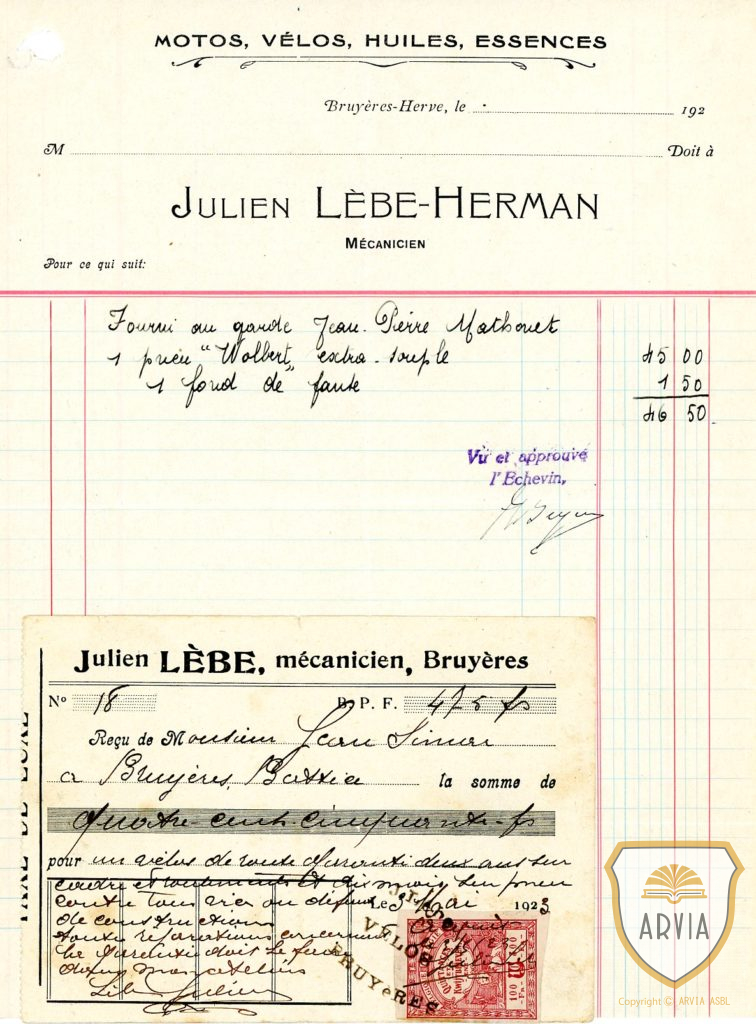 MOTOS, VÉLOS, HUILES, ESSENCES
Bruyères-Herve, le 192
M Doit à
JULIEN LÈBE-HERMAN
MÉCANICIEN
Pour ce qui suit:
Fourni au garde Jean-Pierre Mathonet
1 pneu "Wolbert" extra-souple 45 00
1 fond de jante 1 50
46 50
Vu et approuvé
l'Echevin,
Julien LÈBE, mécanicien, Bruyères
N° 18 B. P. F. 475 fs
Reçu de Monsieur Jean Simon
a Bruyères, Battice la somme de
quatre-cent-cinquante-fs
pour un vélos de route Garanti deux ans sur
cadre et roulements et dix mois sur pneu
contre tous vice ou défaut
Le 3 Mai 1923
de construction
toute réparations concernant
la Garantie doit se faire
dans mes ateliers
Lèbe Julien
VELOS
BRUYÈRES
TAXE DE LUXE
10
100 100
Fr Fr
ARVIA
Copyright © ARVIA ASBL